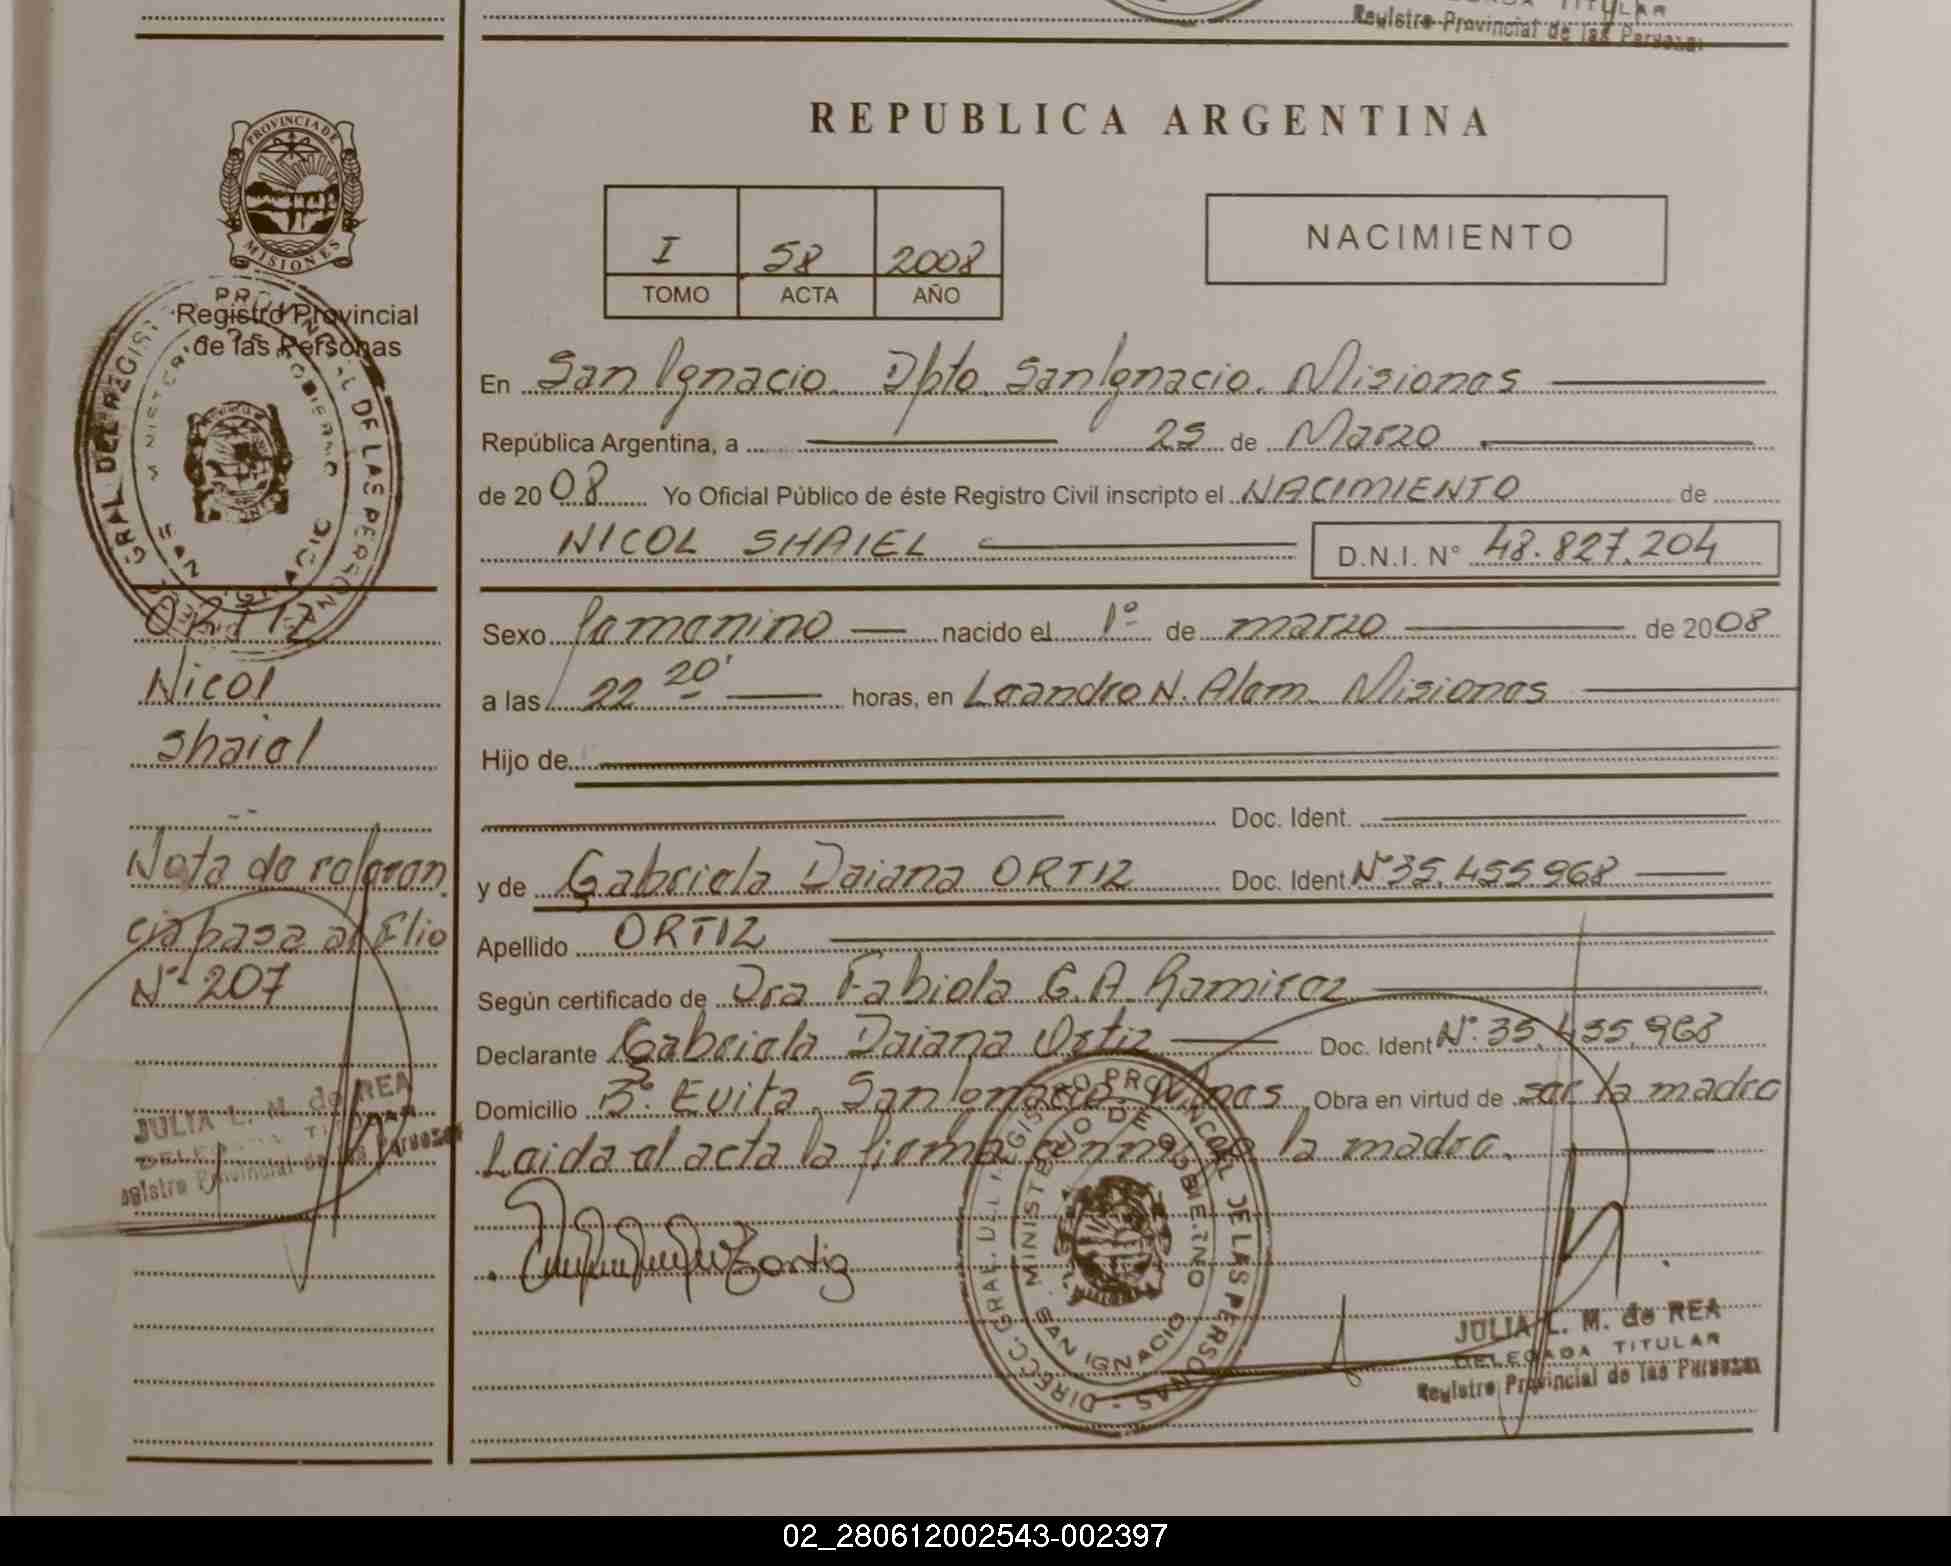 TITULAR
Registro Provincial de las Personas
REPUBLICA ARGENTINA
PROVINCIA DE
MISIONES
I 58 2008
TOMO ACTA AÑO
NACIMIENTO
Registro Provincial
de las Personas
En San Ignacio. Dpto. San Ignacio. Misiones
República Argentina, a 25 de Marzo
de 2008 Yo Oficial Público de éste Registro Civil inscripto el NACIMIENTO de
NICOL SHAIEL D.N.I. N° 48.827.204
Sexo femenino nacido el 1º de marzo de 2008
a las 22 20' horas, en Leandro N. Alem. Misiones
Hijo de
Doc. Ident.
y de Gabriela Daiana ORTIZ Doc. Ident. Nº 35.455.968
Apellido ORTIZ
Según certificado de Dra Fabiola G.A. Ramirez
Declarante Gabriela Daiana Ortiz Doc. Ident Nº. 35.455.968
Domicilio Bº. Evita, San Ignacio. Mnes Obra en virtud de ser la madre
Leida el acta la firma conmigo la madre.
ORTIZ
Nicol
Shaiel
Nota de referen
cia pasa al Flio
Nº 207
JULIA L. M. de REA
DELEGADA TITULAR
Registro Provincial de las Personas
DIRECC. GRAL. DEL REGISTRO PROVINCIAL DE LAS PERSONAS
MINISTERIO DE GOBIERNO
SAN IGNACIO
JULIA L. M. de REA
DELEGADA TITULAR
Registro Provincial de las Personas
02_280612002543-002397